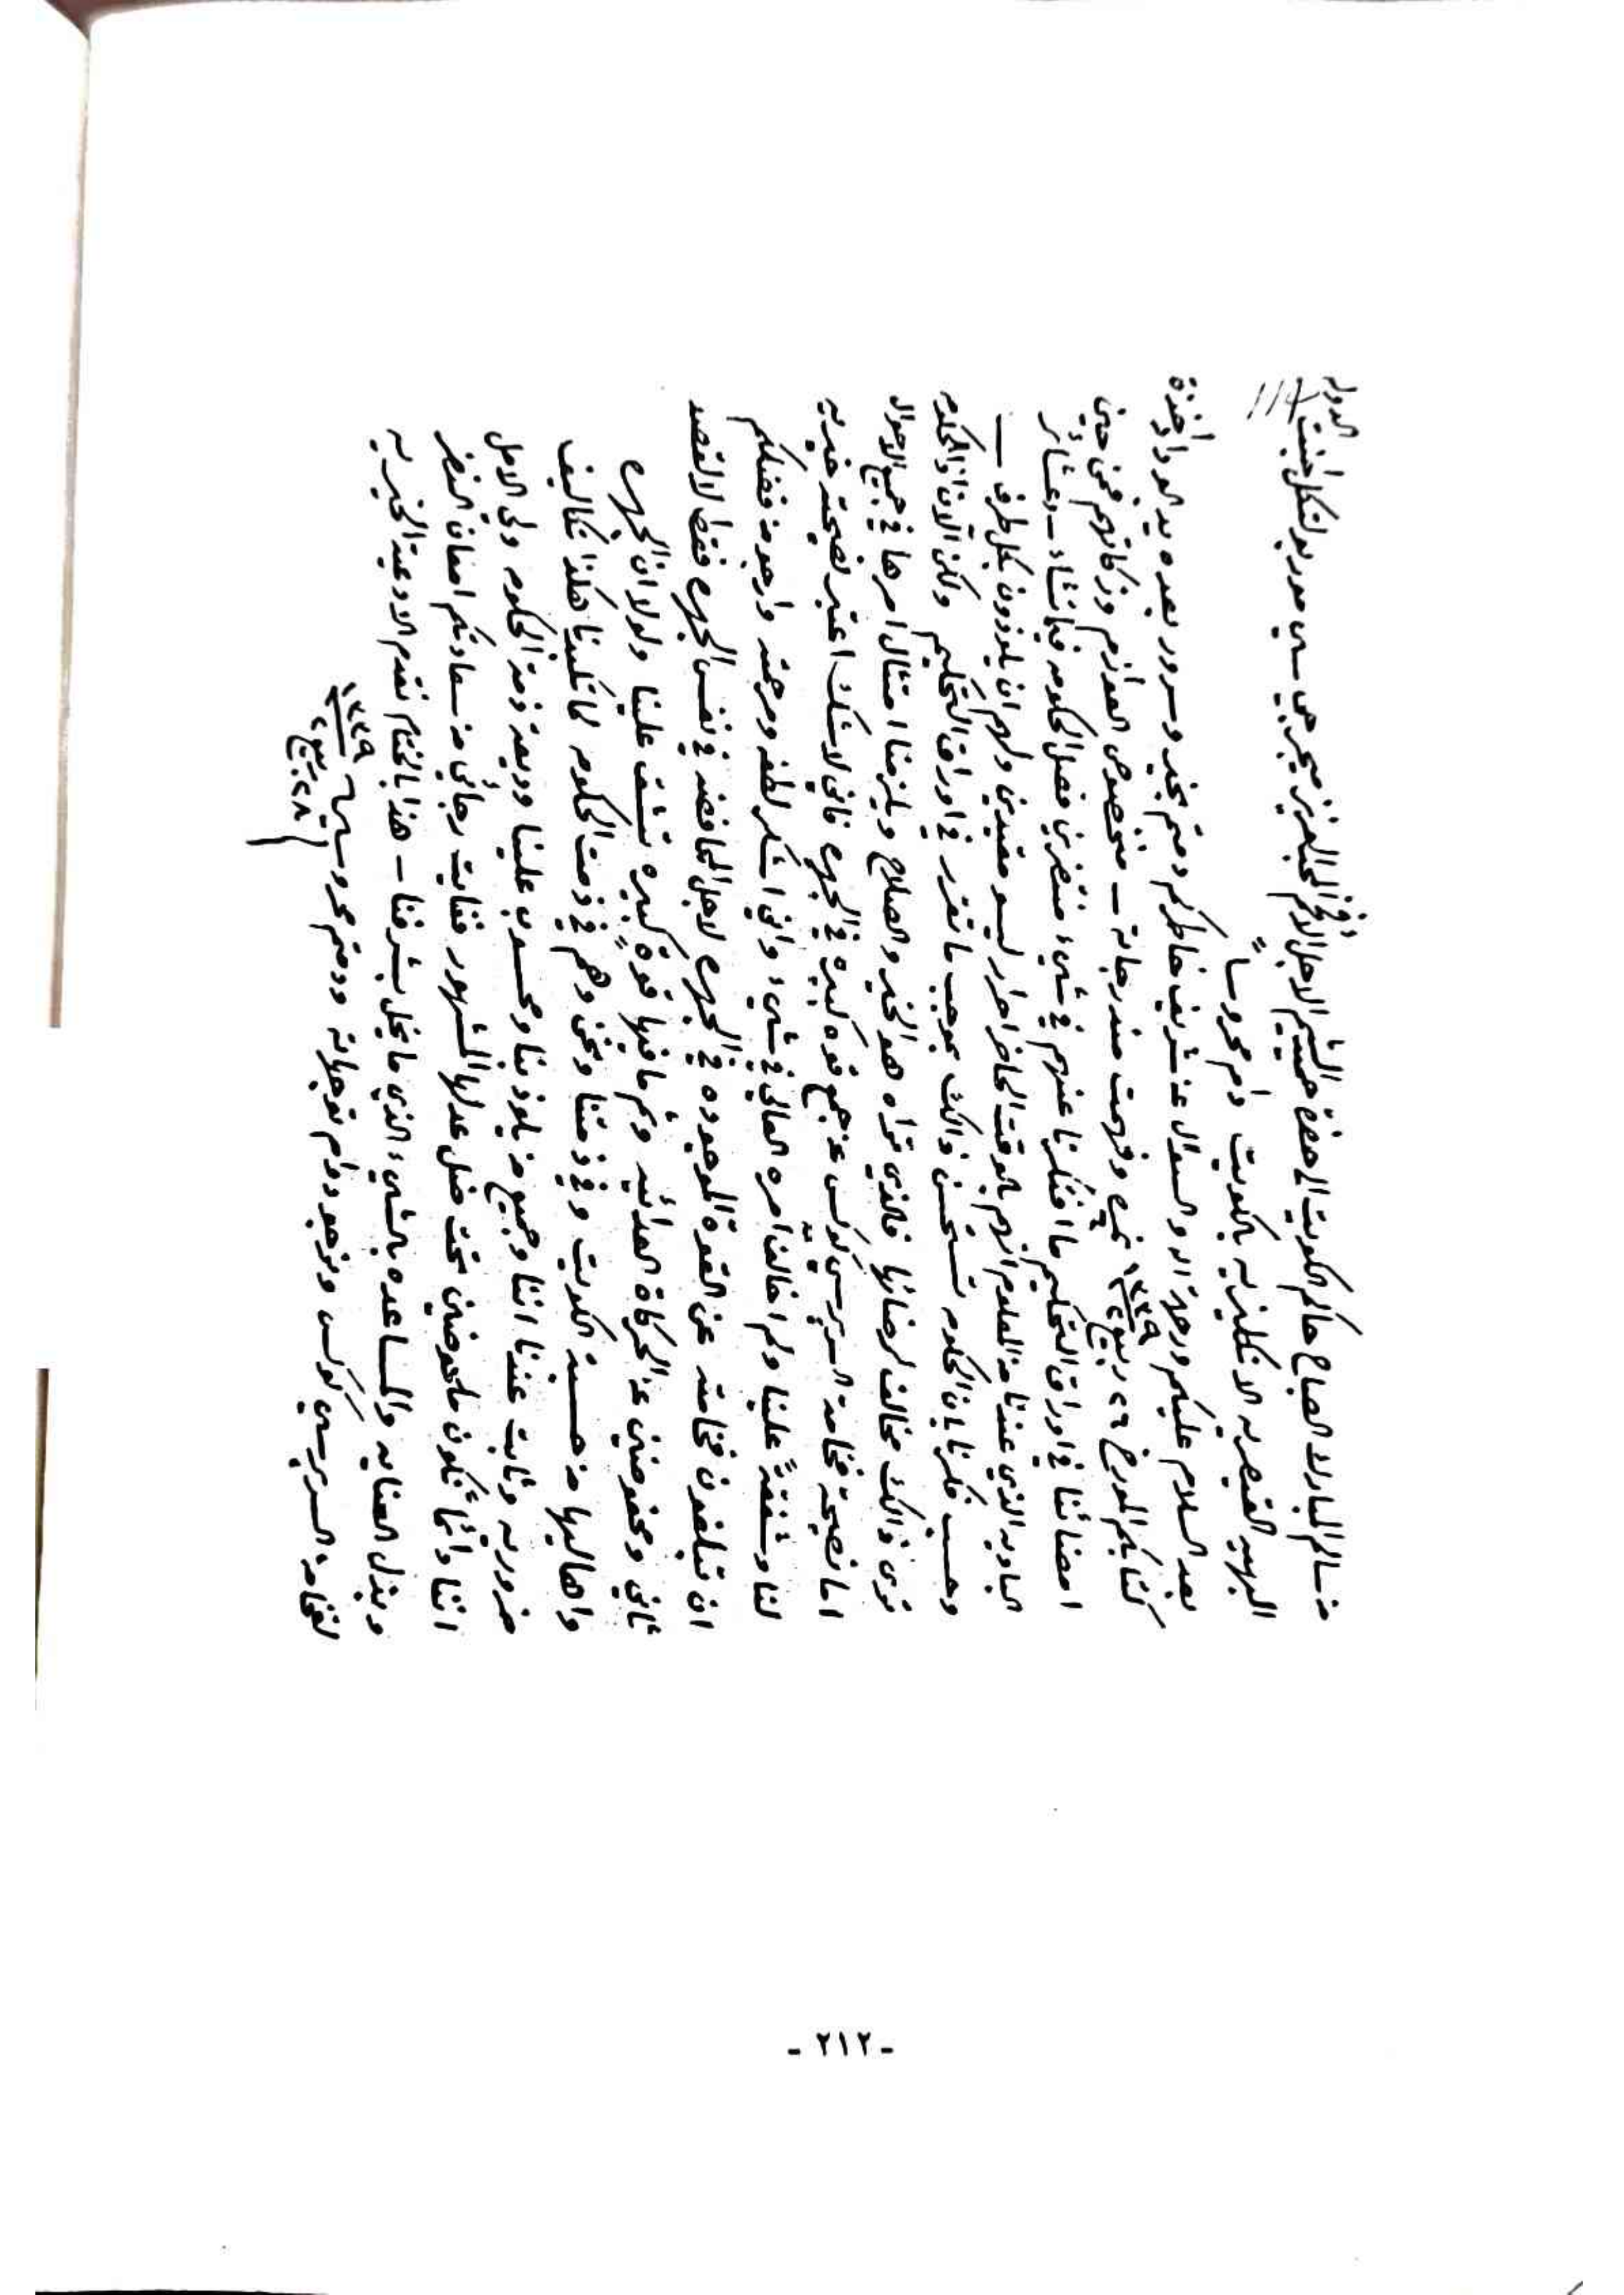 من سالم المبارك الصباح حاكم الكويت الى حضرة حميد الشيم الاجل الافخم المحب العزيز ميجر جي سي مور بولتيكل اجنت الدولة
البهية القيصرية الانكليزية بالكويت دام محروساً
بعد السلام عليكم ورحمة الله والسوال عن شريف خاطركم دمتم بخير وسرور بعده بيد الود أخذة
كتابكم المورخ ٢٦ ربيع٢ ١٣٣٩ نمره وفهمت مندرجاته – منخصوص العوازم وزكاتهم فنحن حين
امضائنا في اوراق التحكيم ما افتكرنا عنهم في شيء منتظرين فصل الحكومه فيما تشاء – وعشائر
البادية الذي عندنا من المعلوم انهم بالوقت الحاضر احرار ليسو مقيدين ولهم ان يلوذون بكل طرف –
وحسب فكرنا بان الحكومه تستحسن ذالك بموجب ما تقرر في اوراق التحكيم ولكن الآن اذا الحكومه
ترى ذالك مخالف لرضائها فالذي تراه هو الخير والصلاح ويلزمنا امتثال امرها في جميع الاحوال
اما نصيحة فخامة السر برسي كوكس عن جمع قوه كبيره في الجهره فاني لاشك اعتبر نصيحته خيريه
لنا وشفقةً علينا ولم اخالف امره العالي في شيء واني اشكر لطفه ومرحمته وارجو من فضلكم
ان تبلغون فخامته عن القوة الموجوده في الجهره لاجل المحافضه في نفس الجهره فقط لا لقصد
ثاني ومخوضين عن الحركاة العدائيه وثم ما فيها قوةٍ كبيره تشق علينا ولولا ان الجهره
واهاليها من حسبة الكويت وفي ذمتنا ونحن وهم في ذمت الحكومه لما تكلفنا هكذا تكاليف
ضروريه وثابت عندنا اننا وجميع من يلوذ بنا ومحسوب علينا وديعة ذمة الحكومه ولي الامل
اننا دائماً نكون ملحوضين تحت ضل عدلها المشهور فغايت رجائي من سعادتكم امعان النضر
وبذل العنايه والمساعده بالشيء الذي ما يخل بشرفنا – هذا بالختام نقدم الادعية الخيريه
لفخامة السر برسي كوكس ونرجو دوام توجهاته ودمتم محروسين
٢٨ ربيع٢ ١٣٣٩
- ٢١٢ -